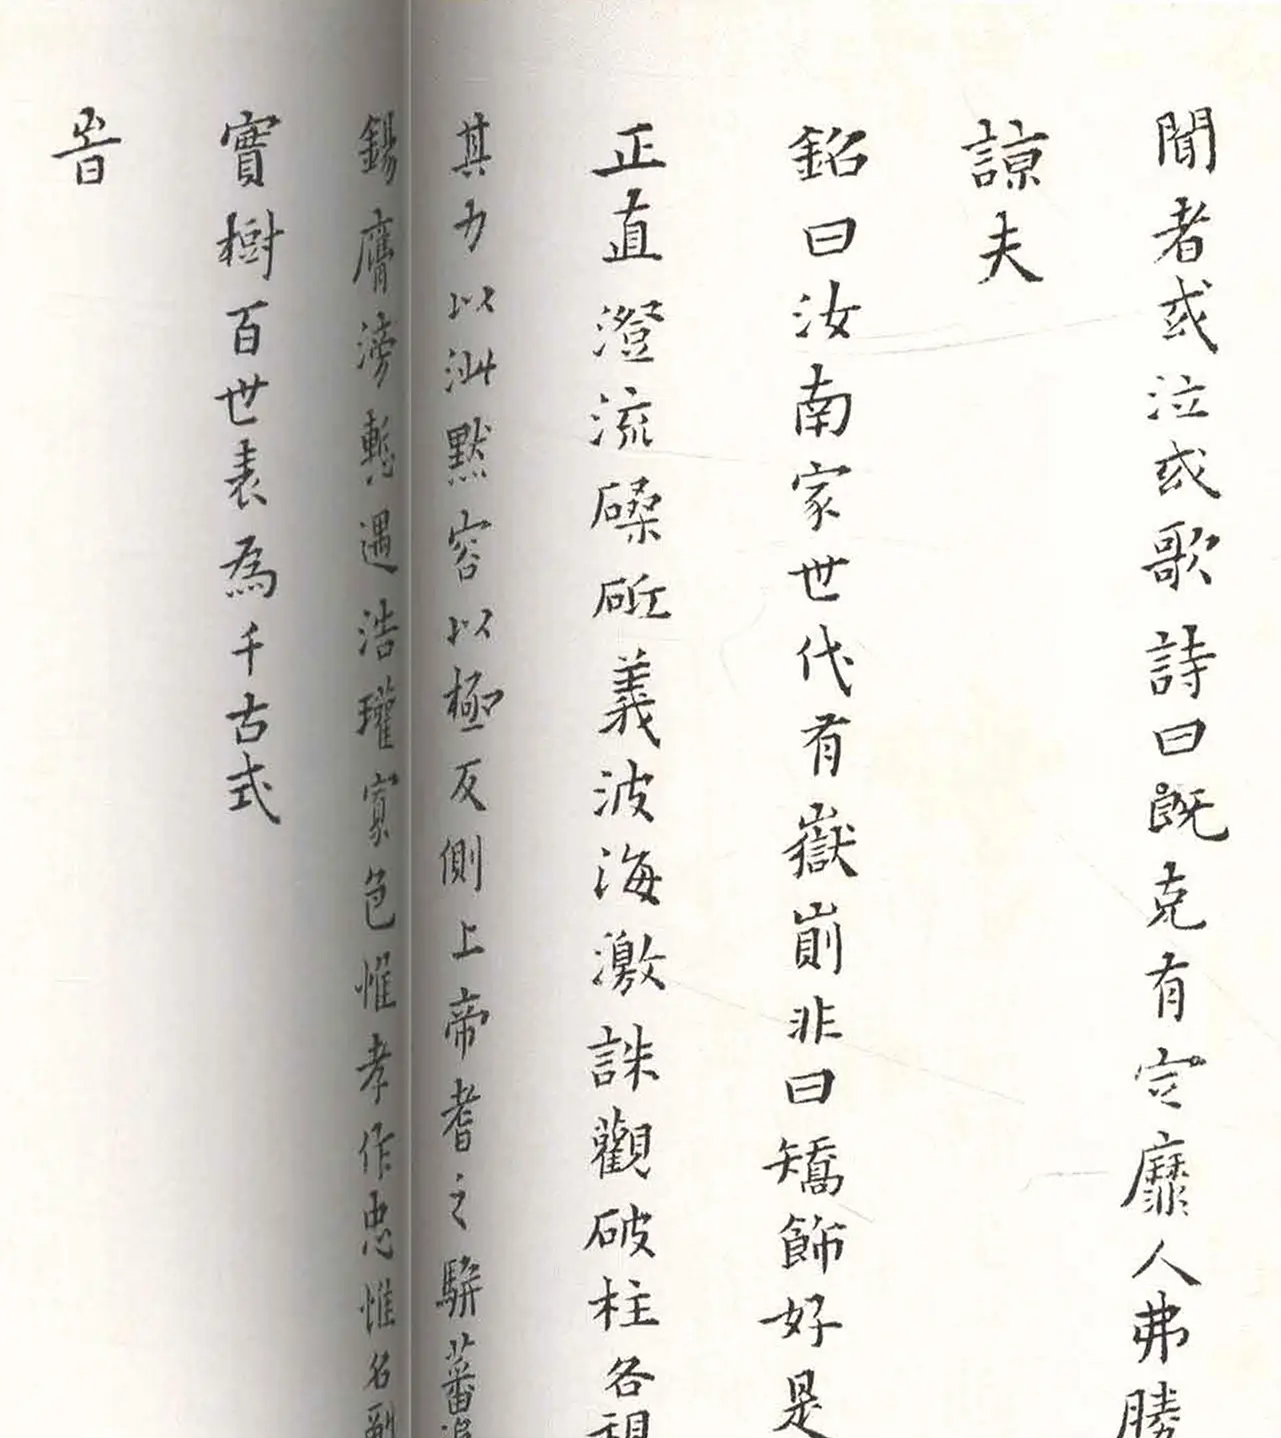 聞者或泣或歌詩曰既克有定靡人弗勝
諒夫
銘曰汝南家世代有嶽崱非曰矯飾好是
正直澄流磉砥義波海激誅觀破柱各視
其力以訕默容以極反側上帝耆之騈蕃
錫膺滂慙遇浩瓘寡色惟孝作忠惟名副
實樹百世表為千古式
旹